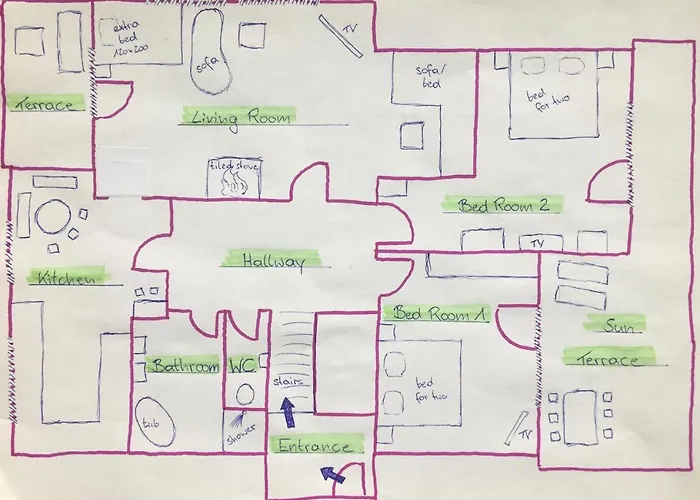 extra
bed
120x200
sofa
TV
sofa/
bed
bed
for two
Terrace
Living Room
tiled stove
Bed Room 2
TV
Hallway
Kitchen
Bed Room 1
Sun
Terrace
Bathroom
WC
stairs
bed
for two
tub
shower
Entrance
TV